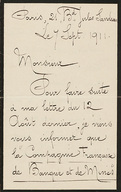 Paris, 21, Bd Jules Sandeau
Le 7 Sept. 1911.
Monsieur,
Pour faire suite
à ma lettre du 12
Août dernier, je viens
vous informer que
la Compagnie Française
de Banque et de Mines